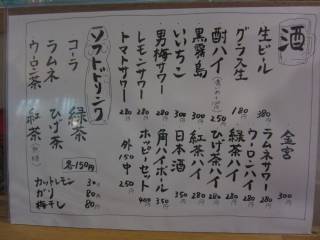 酒
生ビール 380
グラス生 180
酎ハイ 250
黒霧島 300
いいちこ 300
男梅サワー 280
レモンサワー 280
トマトサワー 280
金宮 300
ラムネサワー 280
ウーロンハイ 280
緑茶ハイ 280
ひげ茶ハイ 280
紅茶ハイ 280
日本酒 350
角ハイボール 350
ホッピーセット 400円
中 250
外 150
ソフトドリンク
コーラ
ラムネ
ウーロン茶
緑茶
ひげ茶
紅茶
各150円
カットレモン 30
ガリ 80
梅干し 80